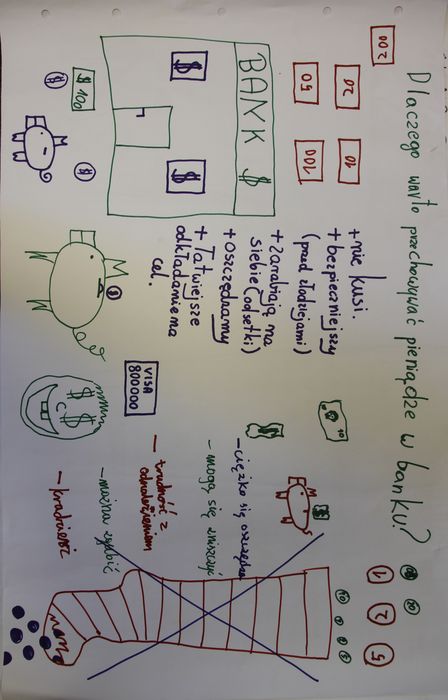 Dlaczego warto przechowywać pieniądze w banku?
200
20
10
50
100
BANK $
$
$
$ 100
$
$
+ nie kusi.
+ bezpieczniejszy
(przed złodziejami)
+ zarabiają na
siebie (odsetki)
+ oszczędzamy
+ Łatwiejsze
odkładanie na
cel.
$
VISA
800000
$ $
10
$
$
- ciężko się oszczędza
- mogą się zniszczyć
- trudność z
odnalezieniem
- można zgubić
- kradzież
1
2
5